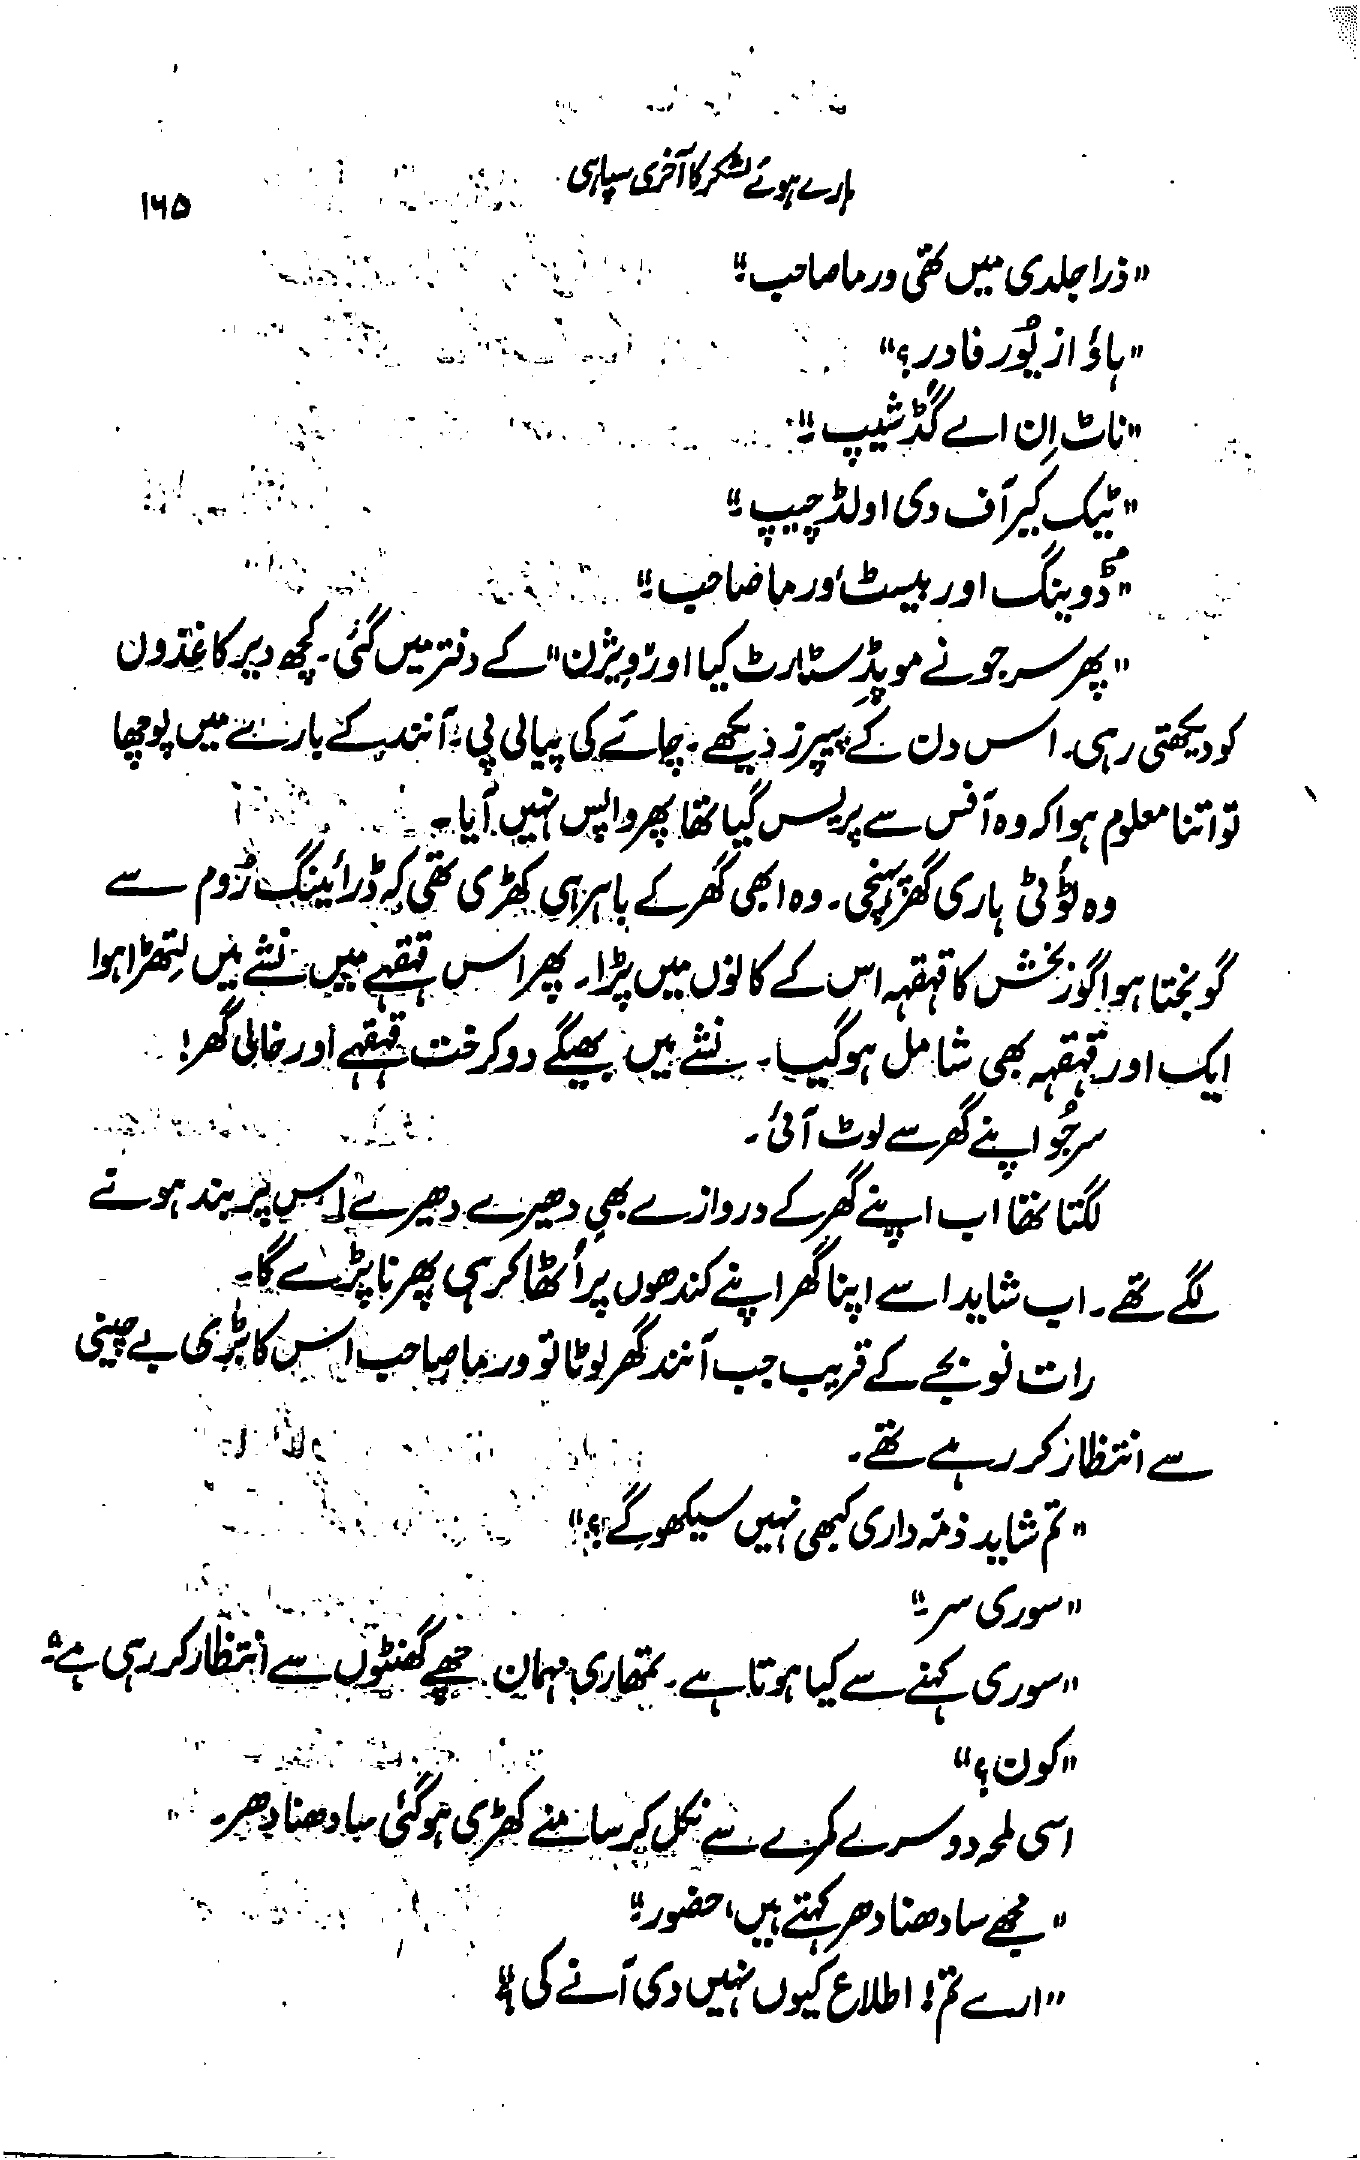 ہارے ہوئے لشکر کا آخری سپاہی
۱۶۵
"ذرا جلدی میں تھی ورما صاحب۔"
"ہاؤ از یُور فادر؟"
"ناٹ اِن اے گُڈ شیپ۔"
"ٹیک کیر آف دی اولڈ چیپ۔"
"ڈوینگ اور بیسٹ ورما صاحب۔"
"پھر سرجو نے موپڈ سٹارٹ کیا اور "ویژن" کے دفتر میں گئی۔ کچھ دیر کاغذوں
کو دیکھتی رہی۔ اس دن کے پیپرز دیکھے۔ چائے کی پیالی پی۔ آنند کے بارے میں پوچھا
تو اتنا معلوم ہوا کہ وہ آفس سے پریس گیا تھا پھر واپس نہیں آیا۔
وہ لَوٹی ہاری گھر پہنچی۔ وہ ابھی گھر کے باہر ہی کھڑی تھی کہ ڈرائینگ رُوم سے
گونجتا ہوا گوربخش کا قہقہہ اس کے کانوں میں پڑا۔ پھر اس قہقہے میں نشے میں لِتھڑا ہوا
ایک اور قہقہہ بھی شامل ہو گیا۔ نشے میں بھیگے دو کرخت قہقہے اور خالی گھر!
سرجُو اپنے گھر سے لوٹ آئی۔
لگتا تھا اب اپنے گھر کے دروازے بھی دھیرے دھیرے اس پر بند ہونے
لگے تھے۔ اب شاید اسے اپنا گھر اپنے کندھوں پر اُٹھا کر ہی پھرنا پڑے گا۔
رات نو بجے کے قریب جب آنند گھر لوٹا تو ورما صاحب اس کا بڑی بے چینی
سے انتظار کر رہے تھے۔
"تم شاید ذمّہ داری کبھی نہیں سیکھو گے؟"
"سوری سر۔"
"سوری کہنے سے کیا ہوتا ہے۔ تمھاری مہمان چھے گھنٹوں سے انتظار کر رہی ہے۔"
"کون؟"
اسی لمحہ دوسرے کمرے سے نکل کر سامنے کھڑی ہو گئی سادھنا دھر۔
"مجھے سادھنا دھر کہتے ہیں، حضور۔"
"ارے تم! اطلاع کیوں نہیں دی آنے کی؟"